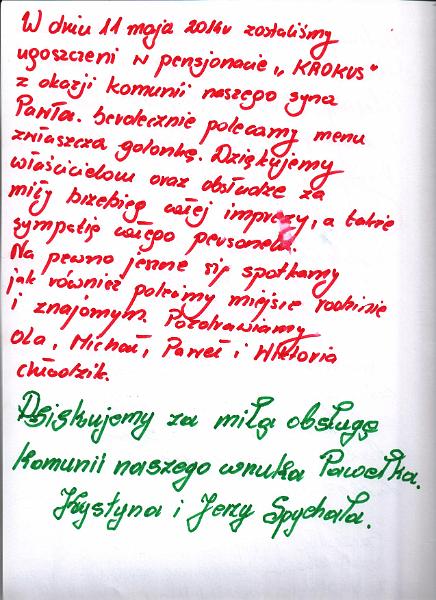 W dniu 11 maja 2014r zostaliśmy
ugoszczeni w pensjonacie „KROKUS"
z okazji komunii naszego syna
Pawła. Serdecznie polecamy menu
zwłaszcza golonkę. Dziękujemy
właścicielom oraz obsłudze za
miły przebieg całej imprezy, a także
sympatię całego personelu.
Na pewno jeszcze się spotkamy
jak również polecimy miejsce rodzinie
i znajomym. Pozdrawiamy
Ola, Michał, Paweł i Wiktoria
Chłodzik.
Dziękujemy za miłą obsługę
komunii naszego wnuka Pawełka.
Krystyna i Jerzy Spychała.